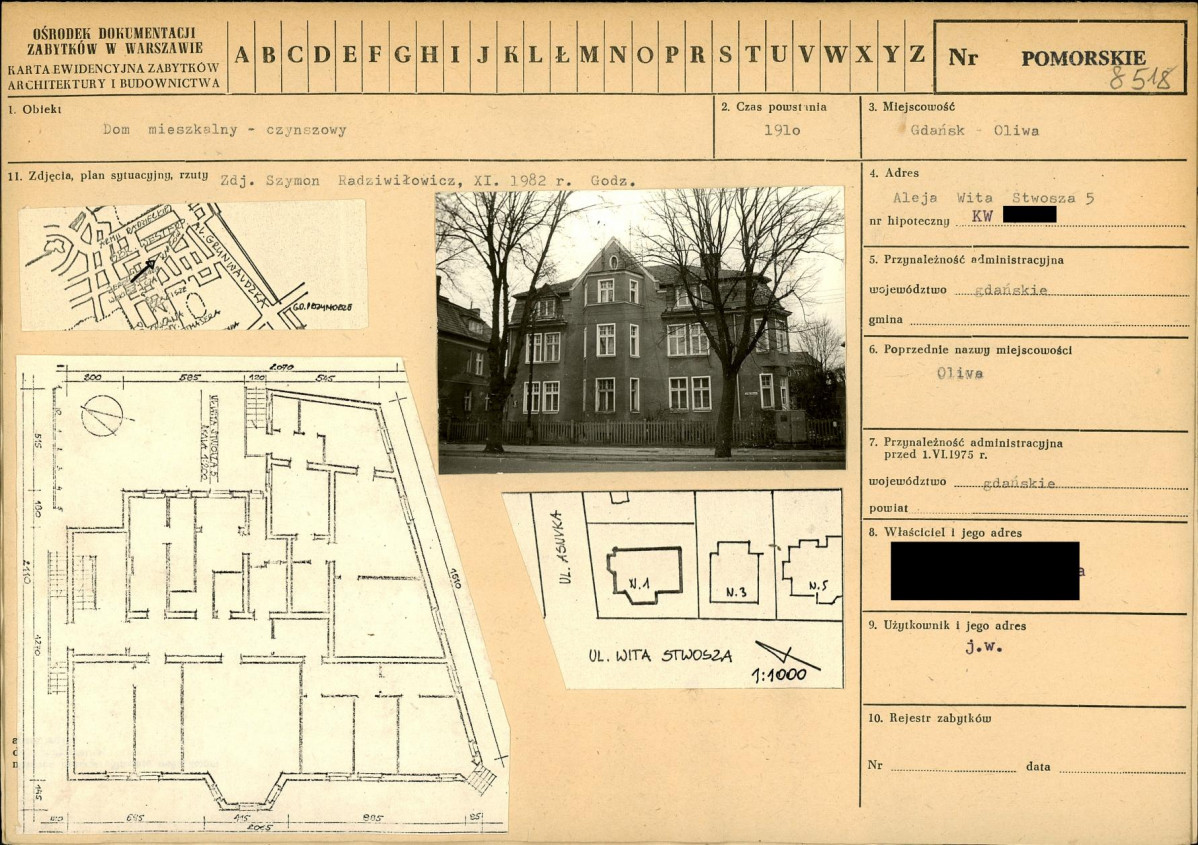 OŚRODEK DOKUMENTACJI
ZABYTKÓW W WARSZAWIE
KARTA EWIDENCYJNA ZABYTKÓW
ARCHITEKTURY I BUDOWNICTWA
A B C D E F G H I J K L Ł M N O P R S T U V W X Y Z
Nr POMORSKIE
8518
1. Obiekt
Dom mieszkalny - czynszowy
2. Czas powstania
191o
3. Miejscowość
Gdańsk - Oliwa
11. Zdjęcia, plan sytuacyjny, rzuty Zdj. Szymon Radziwiłowicz, XI. 1982 r. Godz.
4. Adres
Aleja Wita Stwosza 5
nr hipoteczny KW
5. Przynależność administracyjna
województwo gdańskie
gmina
6. Poprzednie nazwy miejscowości
Oliwa
7. Przynależność administracyjna
przed 1.VI.1975 r.
województwo gdańskie
powiat
8. Właściciel i jego adres
a
9. Użytkownik i jego adres
j.w.
10. Rejestr zabytków
Nr data
AL. GRUNWALDZKA
2070
200 585 120 545
515
190
2110
1270
145
1510
645 415 905 85
2065
UL. ASNYKA
N.1
N.3
N.5
UL. WITA STWOSZA
1:1000